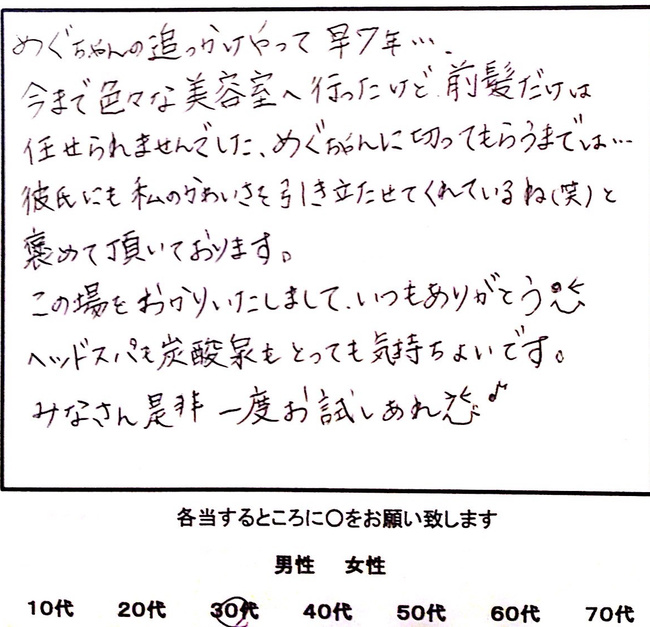 めぐちゃんの追っかけやって早7年…、
今まで色々な美容室へ行ったけど、前髪だけは
任せられませんでした、めぐちゃんに切ってもらうまでは…
彼氏にも私のかわいさを引き立たせてくれているね(笑)と
褒めて頂いております。
この場をおかりいたしまして、いつもありがとう
ヘッドスパも炭酸泉もとっても気持ちよいです。
みなさん是非一度お試しあれ♪
各当するところに〇をお願い致します
男性 女性
10代 20代 30代 40代 50代 60代 70代